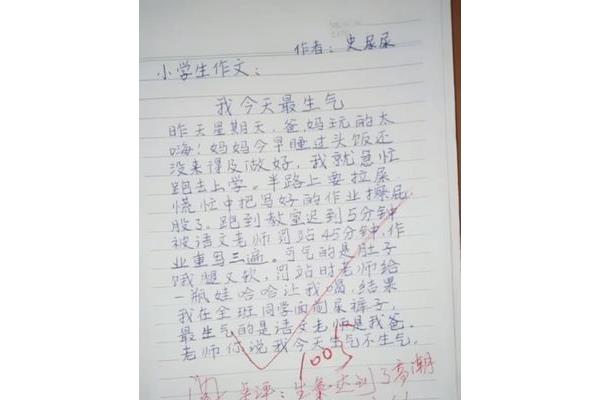 作者：史尿尿
小学生作文：
我今天最生气
昨天星期天，爸、妈玩的太
嗨！妈妈今早睡过头饭还
没来得及做好，我就急忙
跑去上学。半路上要拉屎
慌忙中把写好的作业擦屁
股了，跑到教室迟到5分钟
被语文老师罚站45分钟，作
业重写三遍。可气的是肚子
饿腿又软，罚站时老师给
一瓶娃哈哈让我喝，结果
我在全班同学面前尿裤子，
最生气的是语文老师是我爸。
老师你说我今天生气不生气。
100分
老评：生气达到了高潮